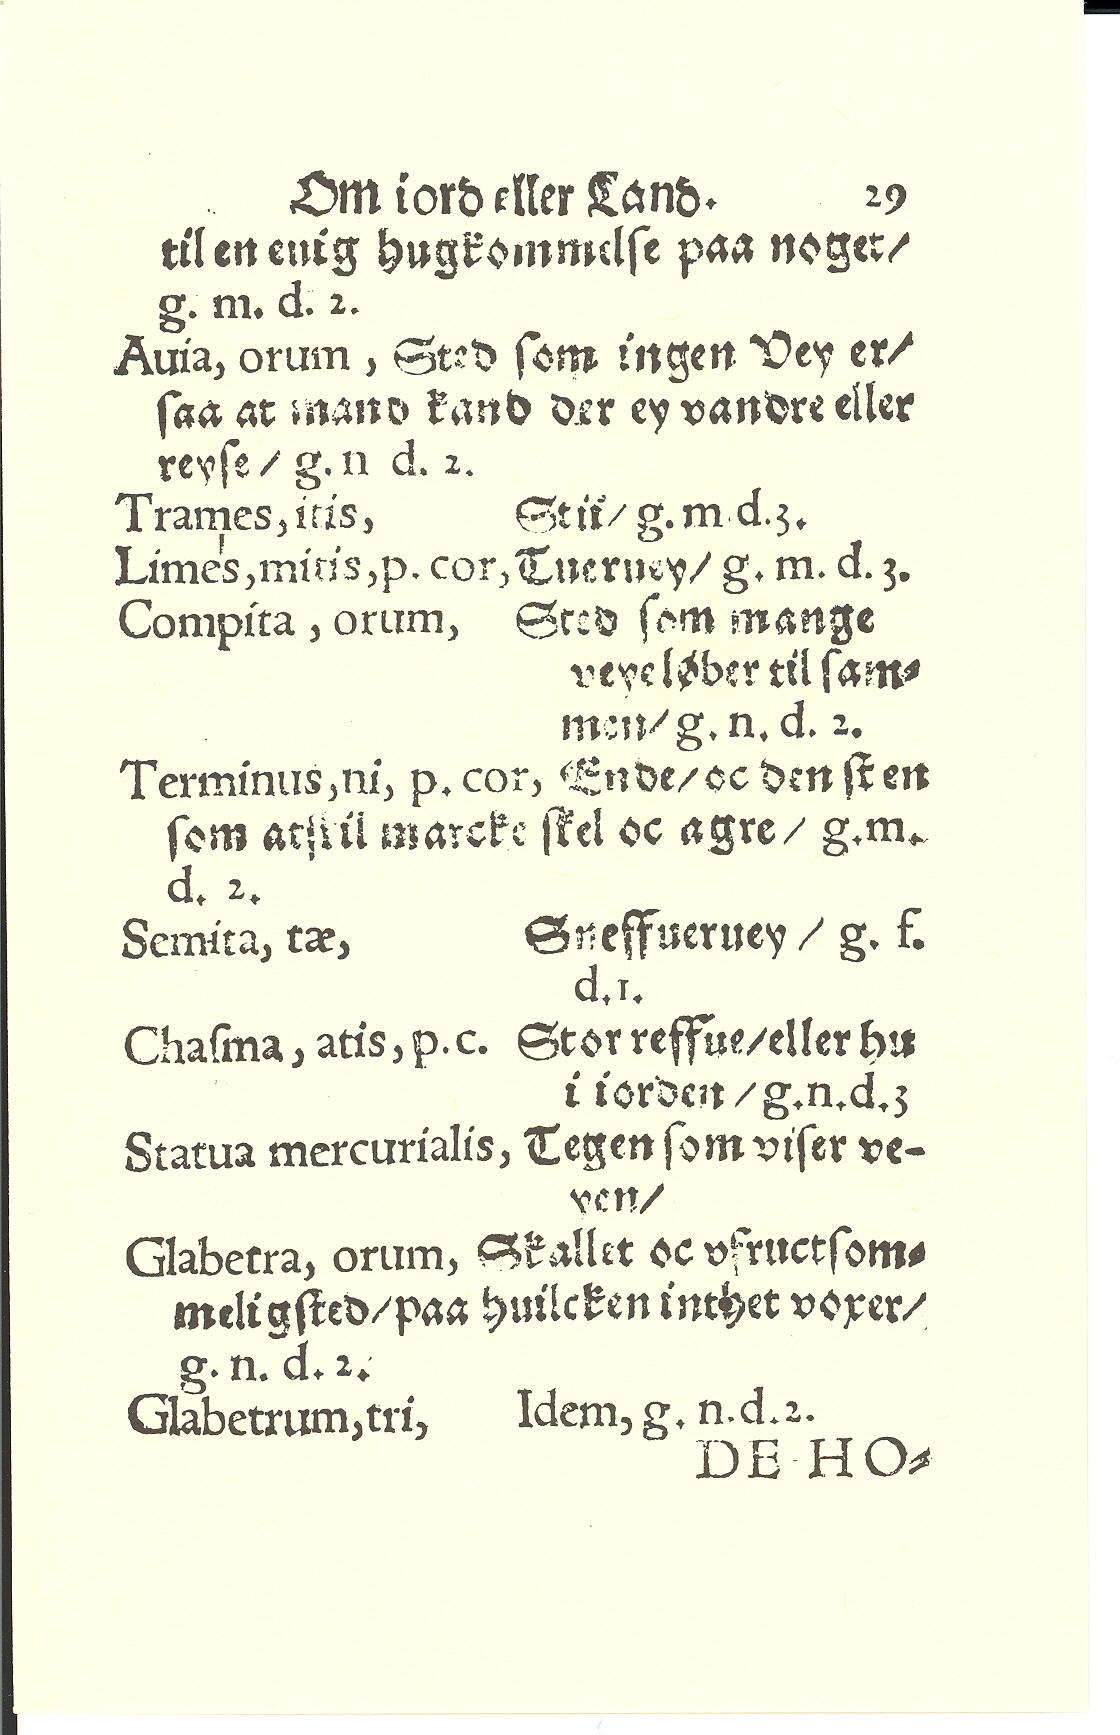 Om iord eller Land. 29
til en euig hugkommelse paa noget/
g. m. d. 2.
Auia, orum, Sted som ingen Vey er/
saa at mand kand der ey vandre eller
reyse/ g. n d. 2.
Trames, itis, Stii/ g. m d. 3.
Limes, mitis, p. cor, Tueruey/ g. m. d. 3.
Compita, orum, Sted som mange
veye løber til sam⸗
men/ g. n. d. 2.
Terminus, ni, p. cor, Ende/ oc den sten
som atskil marcke skel oc agre/ g. m.
d. 2.
Semita, tæ, Sneffueruey/ g. f.
d. 1.
Chasma, atis, p. c. Stor reffue/ eller hu
i iorden/ g. n. d. 3
Statua mercurialis, Tegen som viser ve-
yen/
Glabetra, orum, Skallet oc vfructsom⸗
melig sted/ paa huilcken inthet voxer/
g. n. d. 2.
Glabetrum, tri, Idem, g. n. d. 2.
DE HO⸗